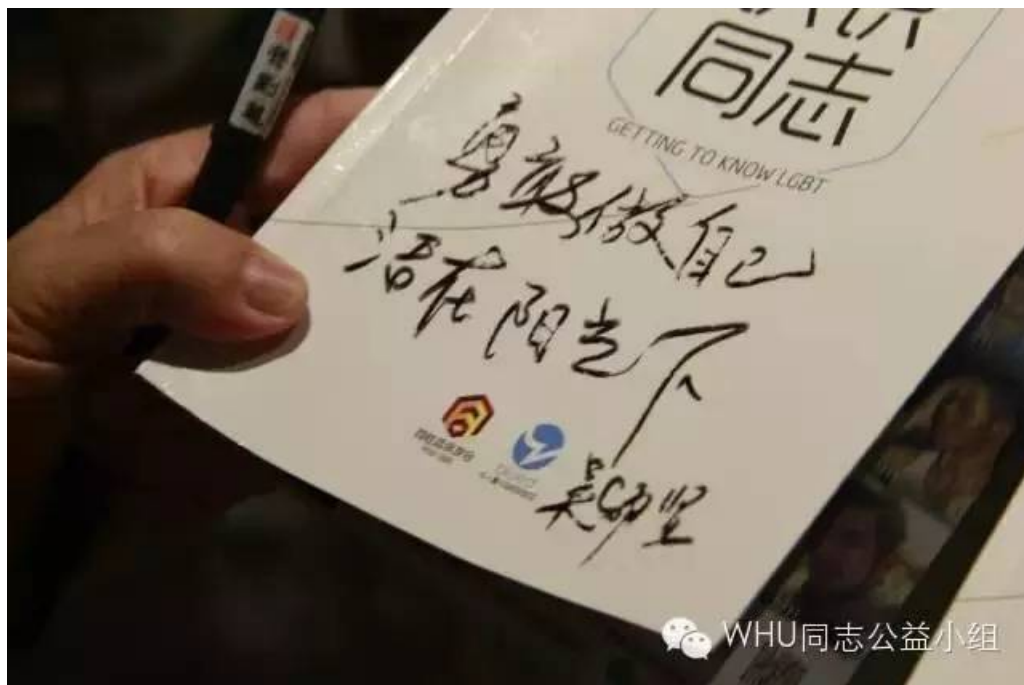 识
同志
GETTING TO KNOW LGBT
勇敢做自己
活在阳光下
吴幼坚
WHU同志公益小组